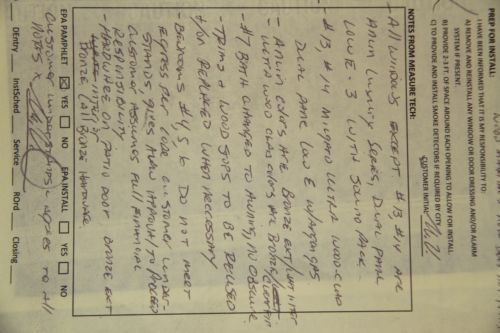 PREP FOR INSTALL:
I HAVE BEEN INFORMED THAT IT IS MY RESPONSIBILITY TO:
A) REMOVE AND REINSTALL ANY WINDOW OR DOOR DRESSING AND/OR ALARM
SYSTEM IF PRESENT.
B) PROVIDE 2-3 FT. OF SPACE AROUND EACH OPENING TO ALLOW FOR INSTALL
C) TO PROVIDE AND INSTALL SMOKE DETECTORS IF REQUIRED BY CITY
CUSTOMER INITIAL:
NOTES FROM MEASURE TECH:
- ALL WINDOWS EXCEPT #13, #14 ARE
ANLIN SERIES, DUAL PANE
LOW E 3 WITH SOUND PACK.
- #13, #14 MILGARD ULTRA WOOD CLAD
DUAL PANE LOW E W/ARGON GAS
- ANLIN COLORS ARE BRONZE EXT/WHT INTER
ULTRA WOOD CLAD COLORS ARE BRONZE/
- #7 BATH CHANGED TO AWNING, NO OBSCURE
- TRIMS & WOOD STOPS TO BE REUSED
REPLACED WHEN NECCESSARY
- BEDROOMS #4, 5, 6 DO NOT MEET
EGRESS PER CODE CUSTOMER UNDER-
STANDS GIVES ANLIN APPROVAL TO PROCEED
CUSTOMER ASSUMES FULL FINANCIAL
RESPONSIBILITY
- HARDWARE ON PATIO DOOR BRONZE EXT
BRONZE (ALL BRONZE HARDWARE.
EPA PAMPHLET YES NO EPA INSTALL YES NO
CUSTOMER UNDERSTANDS & AGREES TO ALL
NOTES X
DEntry InstSched Service ROrd Closing